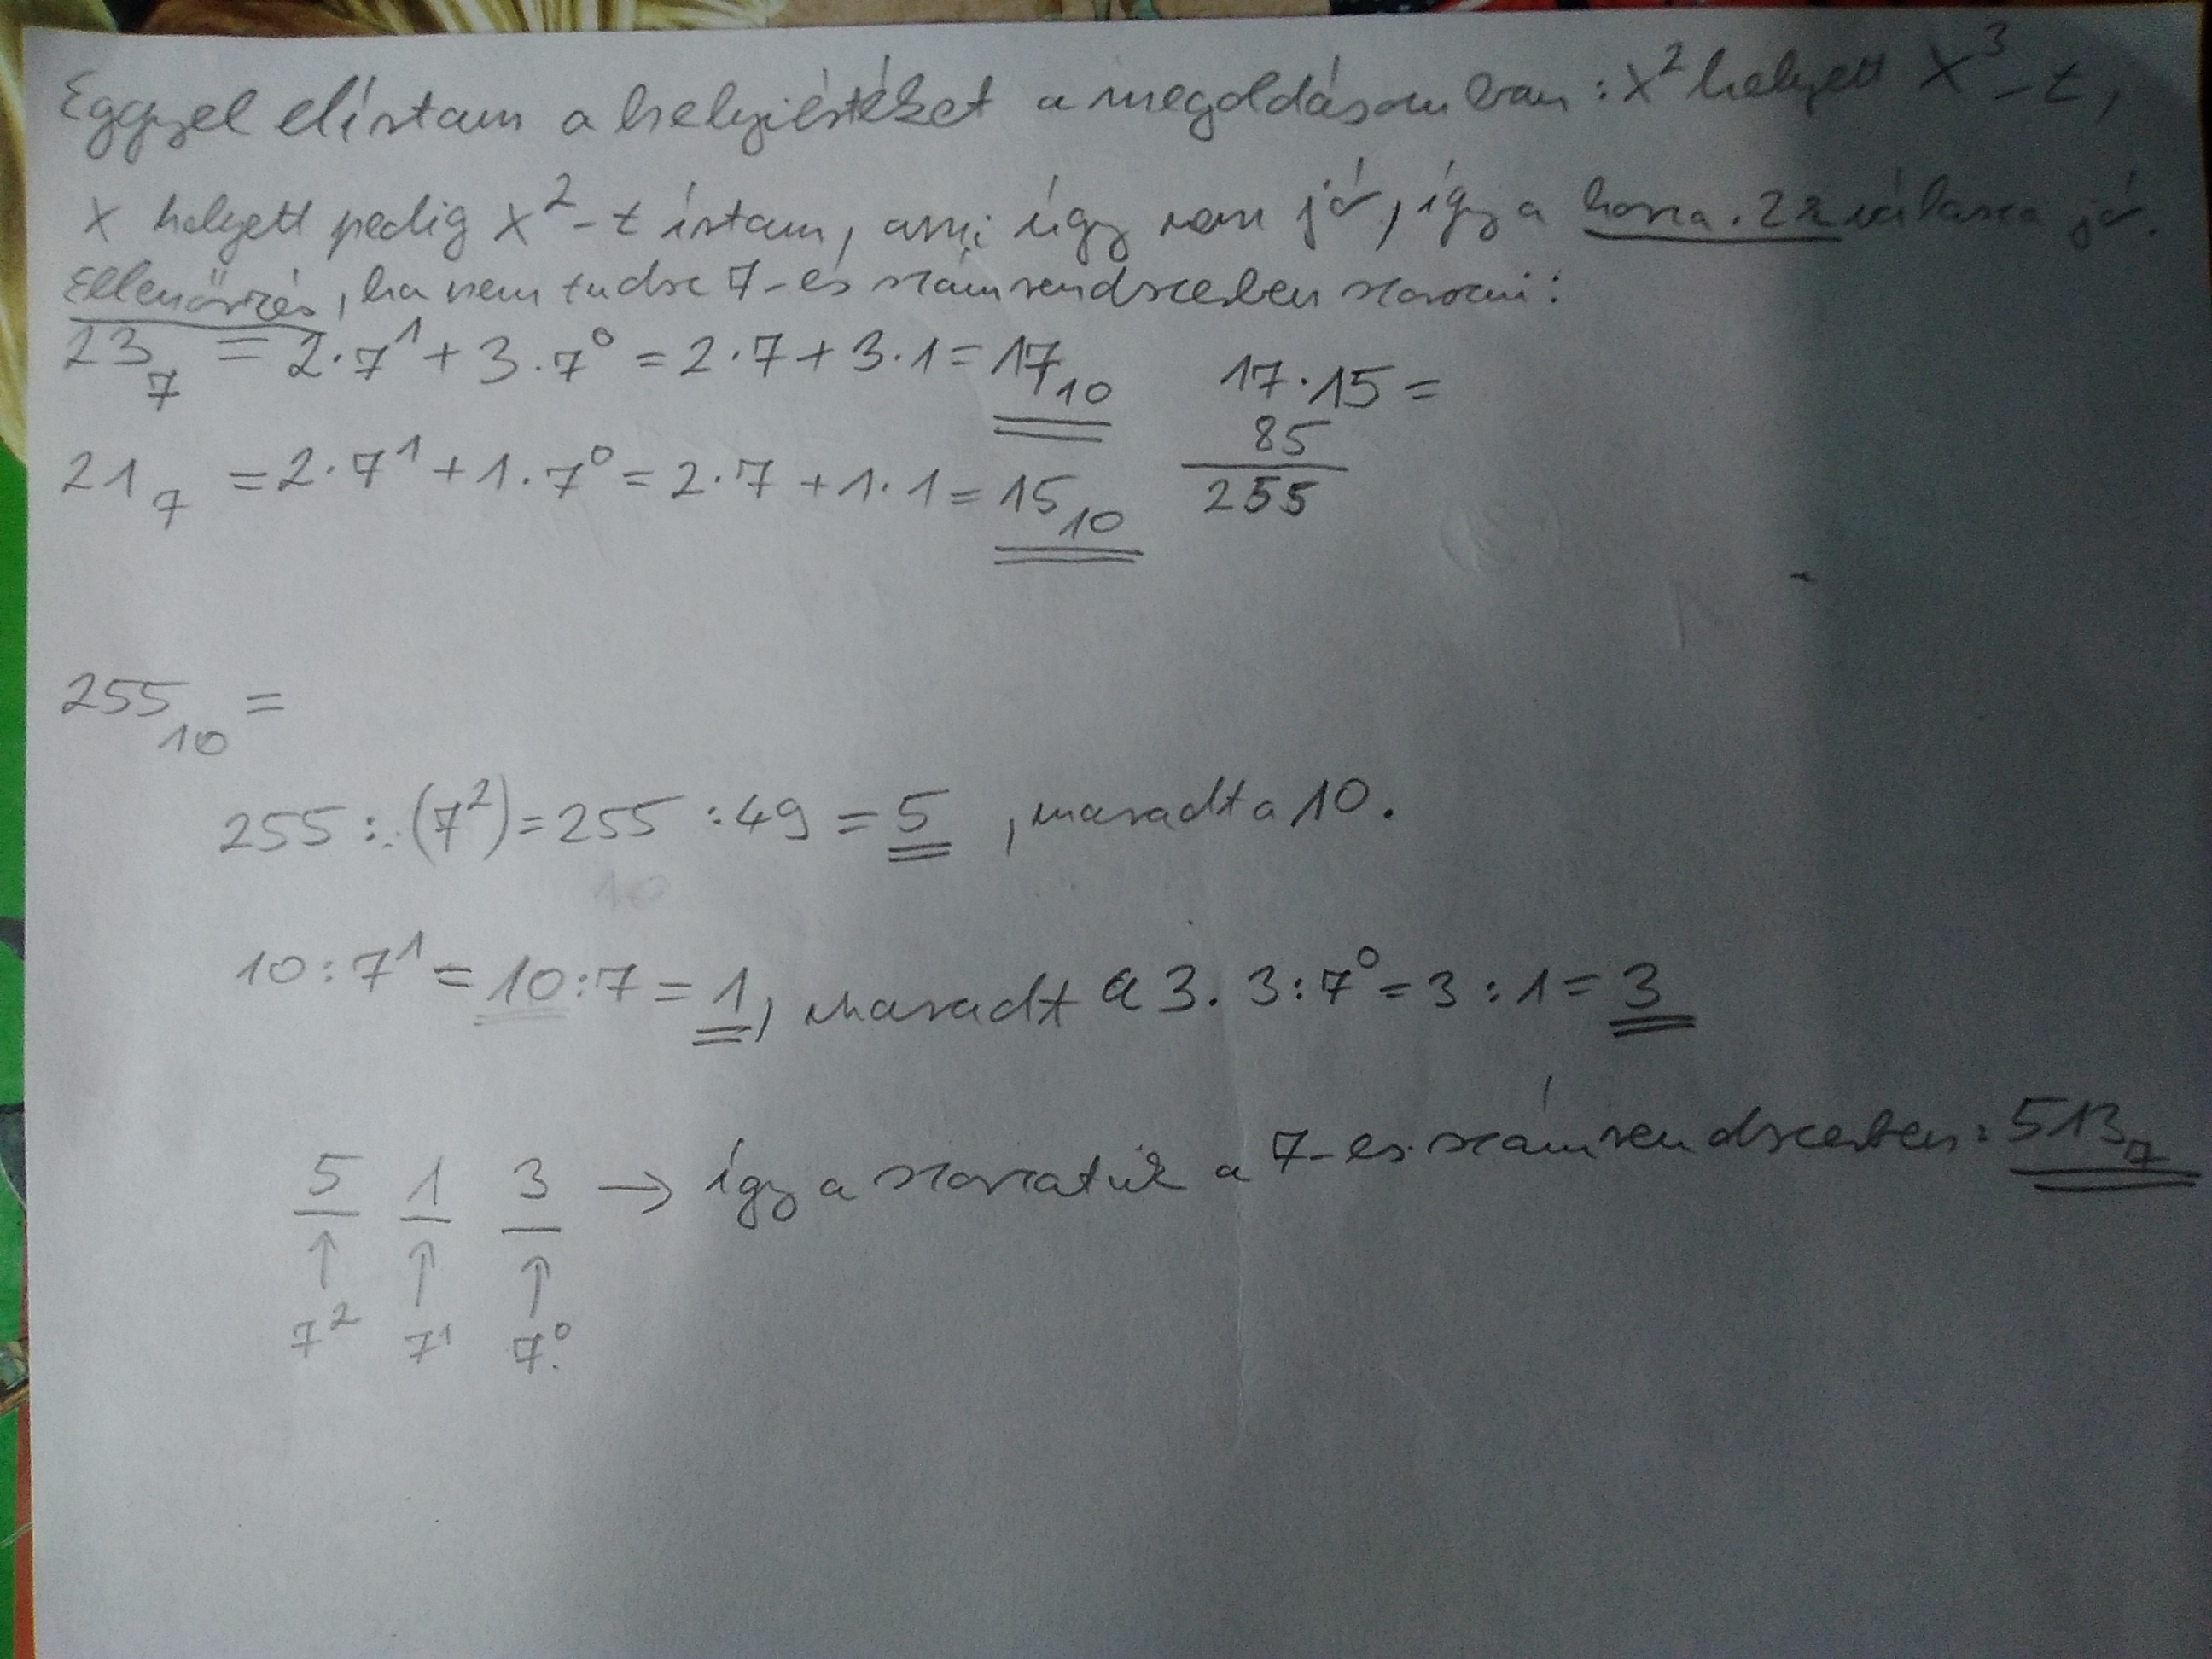 Eggyel elírtam a helyiértéket a megoldásomban: x² helyett x³-t,
x helyett pedig x²-t írtam, ami úgy nem jó, így a válasza jó.
Ellenőrzés, ha nem tudsz 7-es számrendszerben szorozni:
23₇ = 2·7¹ + 3·7⁰ = 2·7 + 3·1 = 17₁₀
17·15 =
85
255
21₇ = 2·7¹ + 1·7⁰ = 2·7 + 1·1 = 15₁₀
255₁₀ =
255 : (7²) = 255 : 49 = 5, maradt a 10.
10 : 7¹ = 10 : 7 = 1, maradt a 3. 3 : 7⁰ = 3 : 1 = 3
5 1 3 → így a szorzatuk a 7-es számrendszerben: 513₇
↑ ↑ ↑
7² 7¹ 7⁰